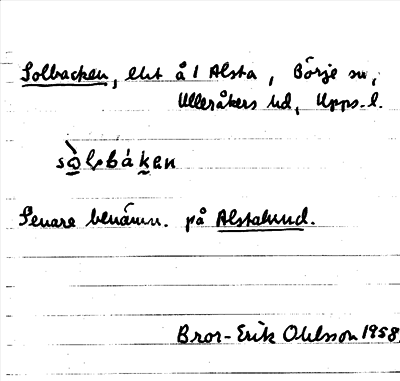 Solbacken, eht å 1 Alsta, Börje sn,
Ulleråkers hd, Upps. l.
sòlbáken
Senare benämn. på Alstalund.
Bror-Erik Ohlsson 1958.